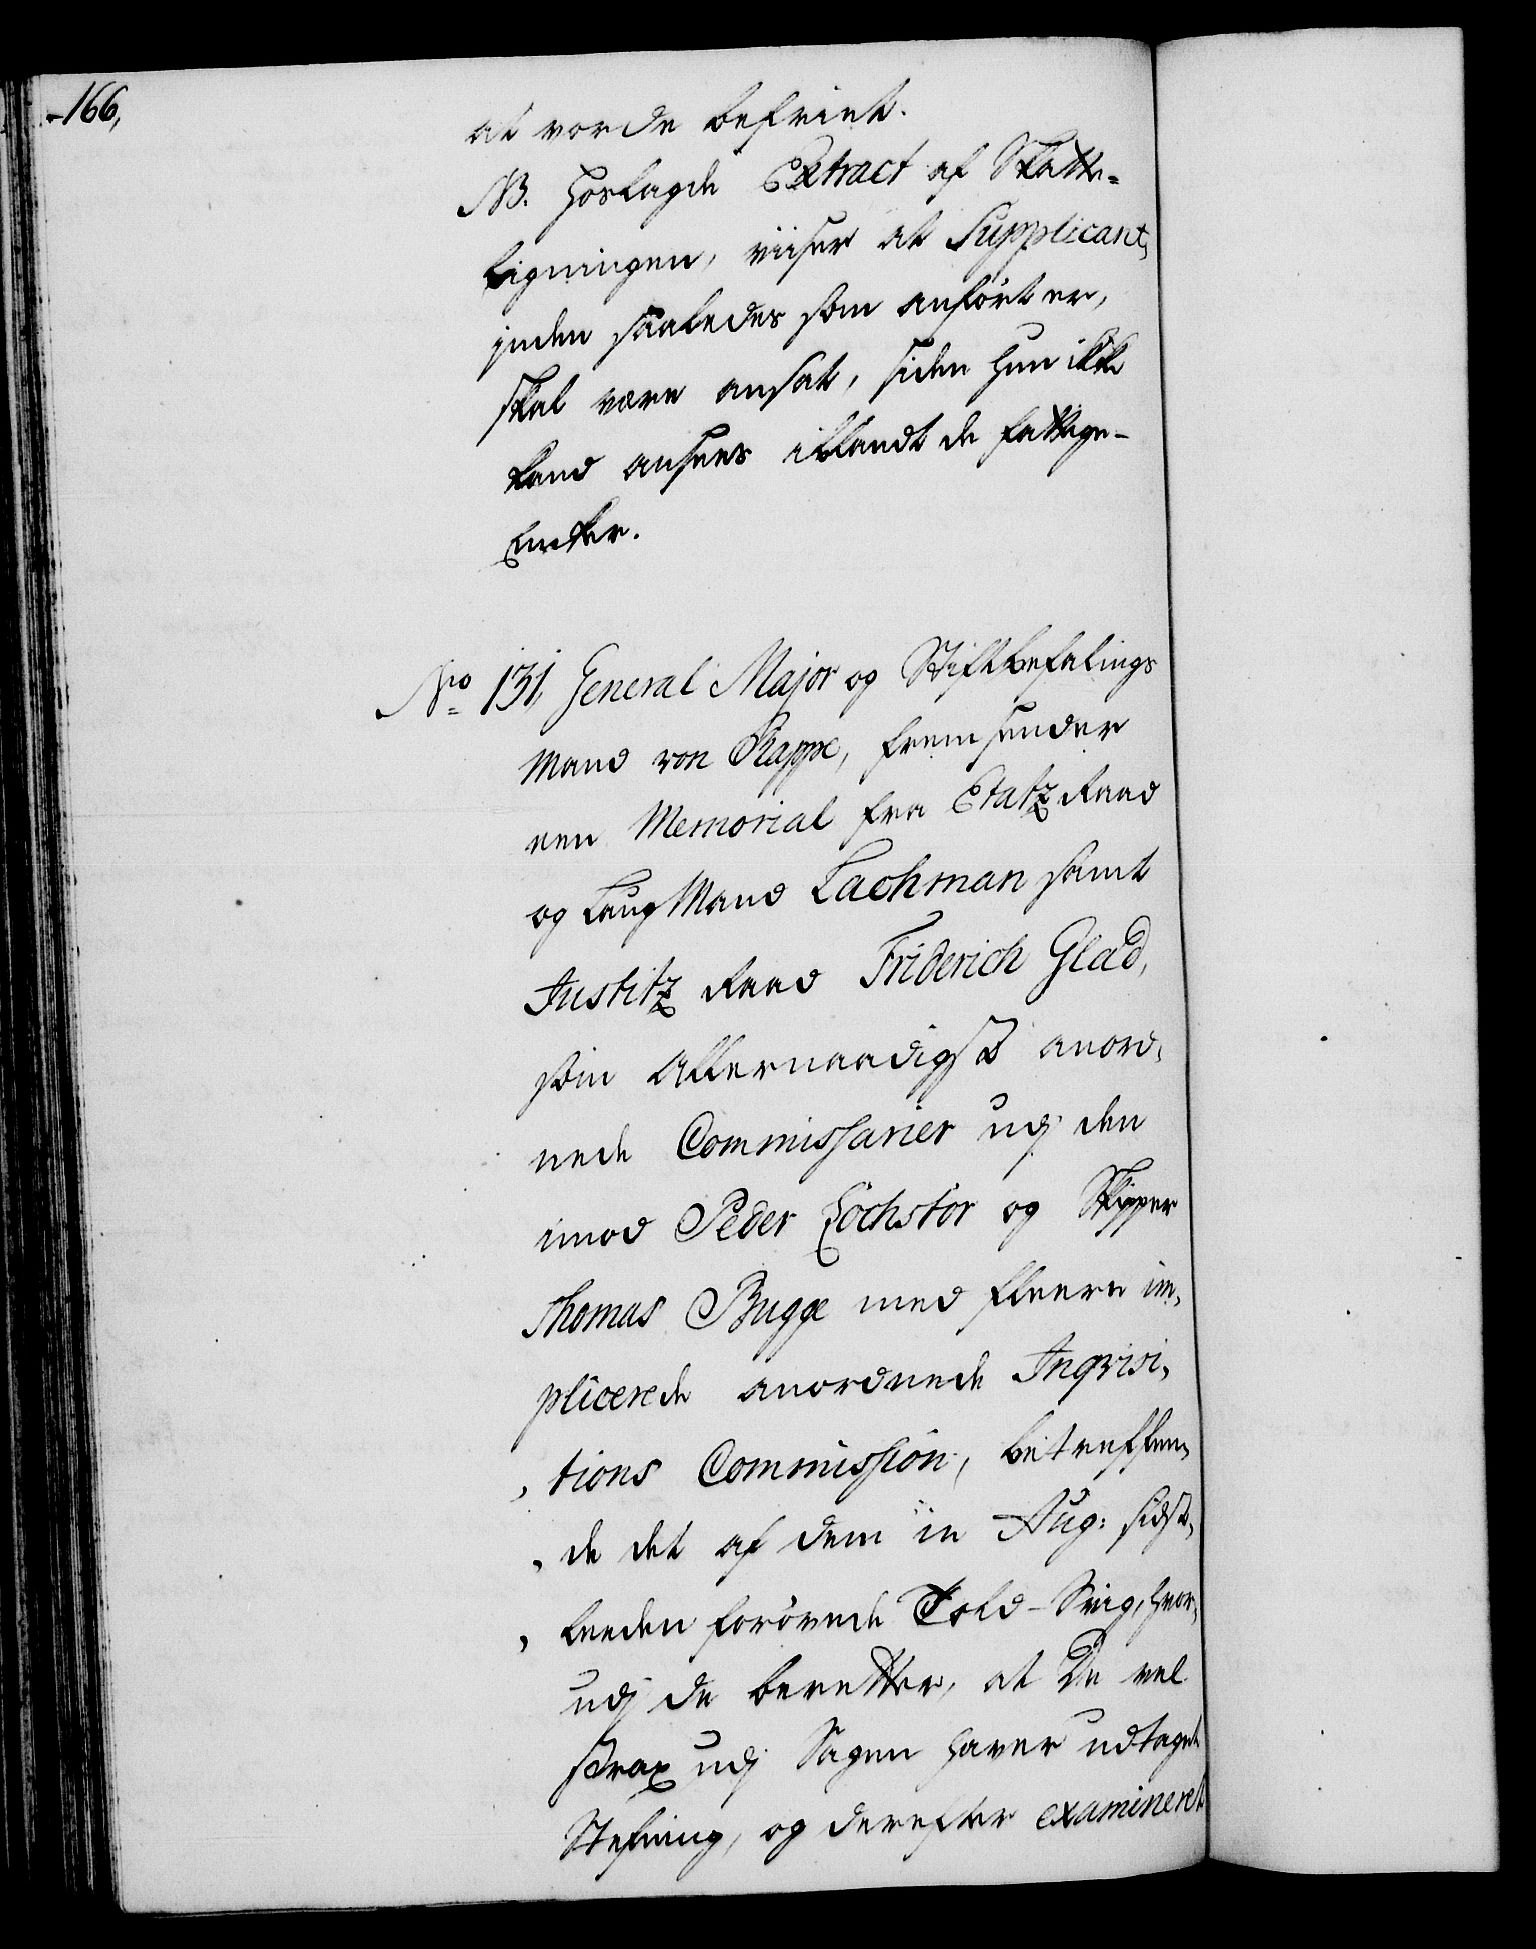 166,
at vorde befriet.
NB. hoslagde Extract af Skatte-
Ligningen, viiser at Supplicant,
inden saaledes som anført er,
skal være ansat, siden hun ikke
kand ansees iblandt de fattige-
Enker.
No 131, General Major og Stiftbefalings
Mand von Rappe, fremsender
een Memorial fra Etatz Raad
og Laug Mand Lachman samt
Justitz Raad Friderich Glad,
som Allernaadigst anord,
nede Commissarier udj den
imod Peder Höchstör og Skipper
Thomas Bugge med fleere im,
plicerede anordnede Inqvisi,
, tions Commission, betreffen,
, de det af dem in Aug: sidst,
, leeden forøvede Told-Svig, hvor,
udj de beretter, at De vel
strax udj Sagen haver udtaget
Stefning, og derefter examineret